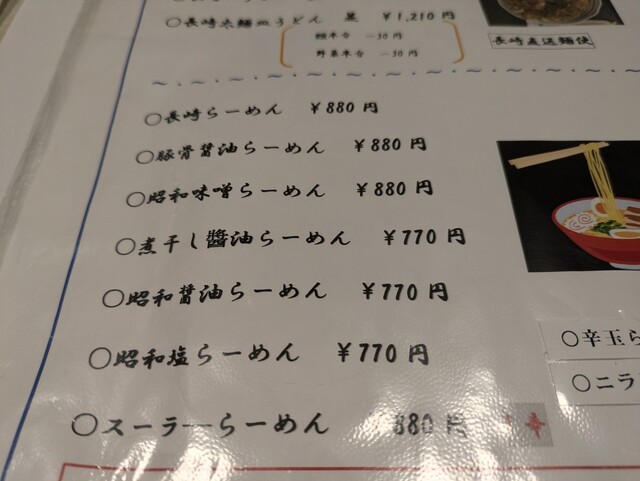 ○長崎太麺皿うどん 並 ¥1,210円
麺半分 -50円
野菜半分 -50円
長崎直送麺使
○長崎らーめん ¥880円
○豚骨醤油らーめん ¥880円
○昭和味噌らーめん ¥880円
○煮干し醬油らーめん ¥770円
○昭和醤油らーめん ¥770円
○昭和塩らーめん ¥770円
○辛玉ら
○ニラ
○スーラーらーめん 880円 辛